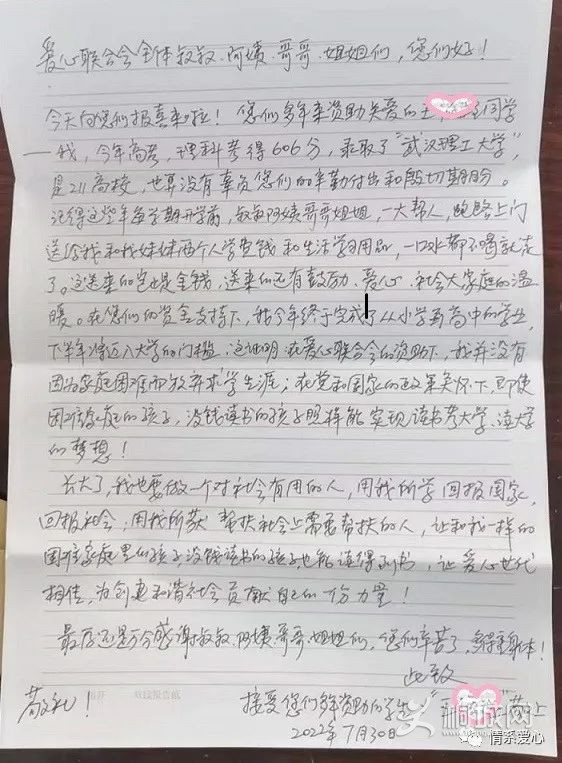 爱心联合会全体叔叔、阿姨、哥哥、姐姐们,您们好!
今天向您们报喜来啦!您们多年来资助关爱的王 同学
—我,今年高考,理科考得606分,录取了“武汉理工大学”,
是211高校,也算没有辜负您们的辛勤付出和殷切期盼。
记得这些年每学期开学前,叔叔阿姨哥哥姐姐,一大帮人,跑路上门
送给我和我妹妹两个人学费钱和生活学习用品,一口水都不喝就走
了。这送来的岂止是金钱,送来的还有鼓励、爱心、社会大家庭的温
暖。在您们的资金支持下,我今年终于完成了从小学到高中的学业,
下半年将迈入大学的门槛。这证明:在爱心联合会的资助下,我并没有
因为家庭困难而放弃求学生涯;在党和国家的政策关怀下,即使
困难家庭的孩子,没钱读书的孩子照样能实现读书考大学、读大学
的梦想!
长大了,我也要做一个对社会有用的人,用我所学回报国家,
回报社会,用我所获帮扶社会上需要帮扶的人,让和我一样的
困难家庭里的孩子,没钱读书的孩子也能读得到书,让爱心世代
相传,为创建和谐社会贡献自己的一份力量!
最后还是万分感谢叔叔、阿姨、哥哥、姐姐们,您们辛苦了,多保重身体!
此致
敬礼!
接受您们多年资助的学生“王 ”敬上
2022年7月30日
桐城网
情系爱心